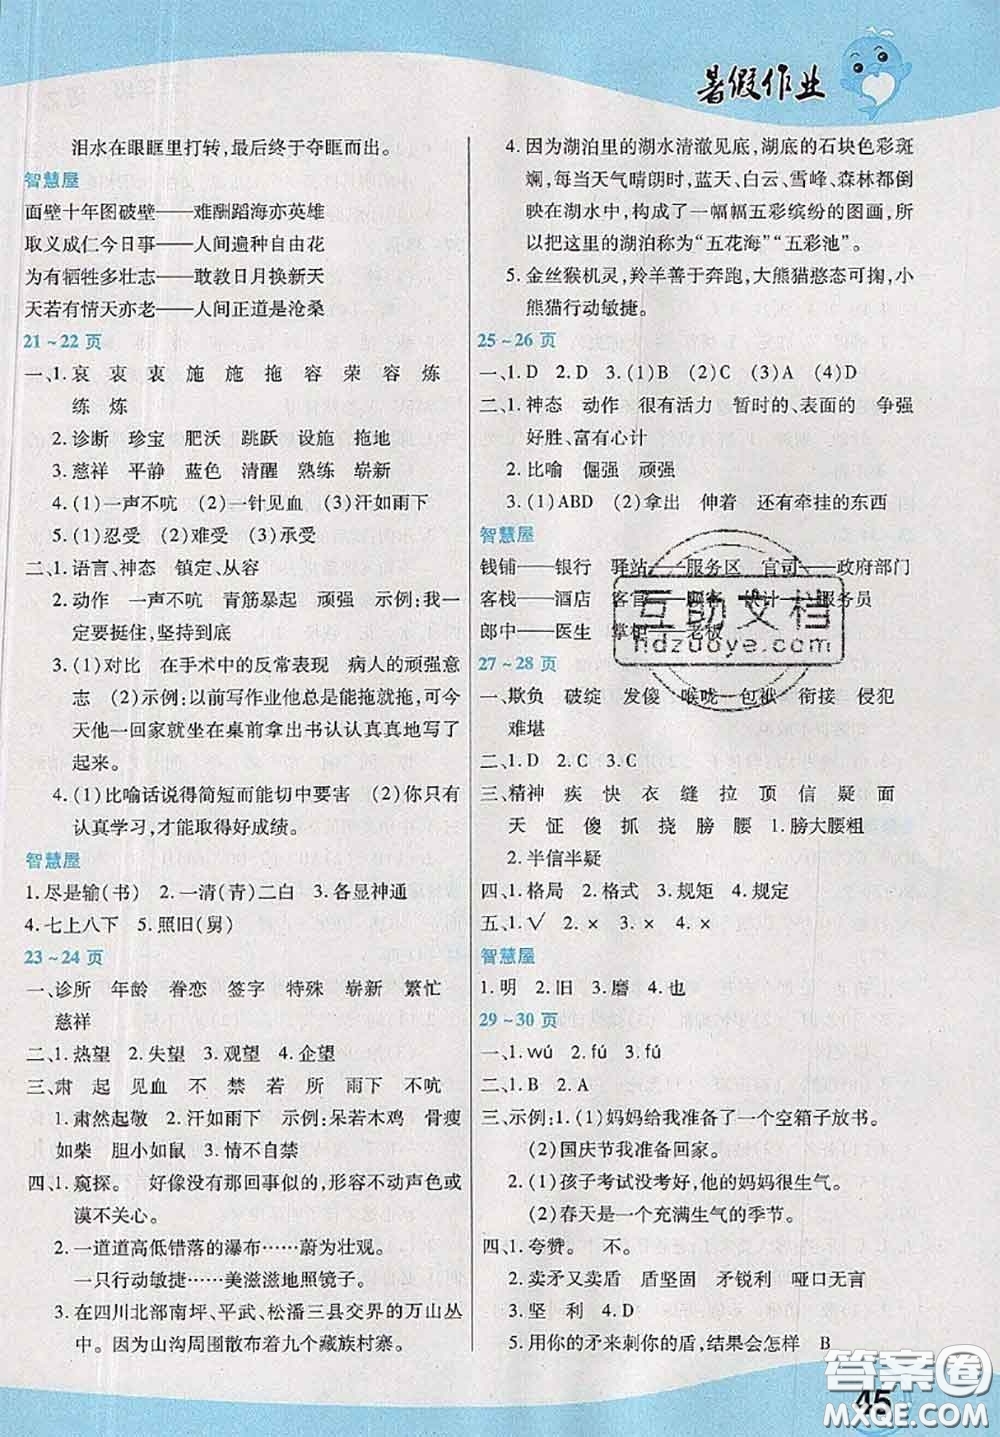 暑假作业
泪水在眼眶里打转,最后终于夺眶而出。
智慧屋
面壁十年图破壁——难酬蹈海亦英雄
取义成仁今日事——人间遍种自由花
为有牺牲多壮志——敢教日月换新天
天若有情天亦老——人间正道是沧桑
21~22 页
一、1. 哀 衷 衷 施 施 拖 容 荣 容 炼
练 炼
2. 诊断 珍宝 肥沃 跳跃 设施 拖地
3. 慈祥 平静 蓝色 清醒 熟练 崭新
4. (1)一声不吭 (2)一针见血 (3)汗如雨下
5. (1)忍受 (2)难受 (3)承受
二、1. 语言、神态 镇定、从容
2. 动作 一声不吭 青筋暴起 顽强 示例:我一
定要挺住,坚持到底
3. (1)对比 在手术中的反常表现 病人的顽强意
志 (2)示例:以前写作业他总是能拖就拖,可今
天他一回家就坐在桌前拿出书认认真真地写了
起来。
4. (1)比喻话说得简短而能切中要害 (2)你只有
认真学习,才能取得好成绩。
智慧屋
1. 尽是输(书) 2. 一清(青)二白 3. 各显神通
4. 七上八下 5. 照旧(舅)
23~24 页
一、诊所 年龄 眷恋 签字 特殊 崭新 繁忙
慈祥
二、1. 热望 2. 失望 3. 观望 4. 企望
三、肃 起 见血 不 禁 若 所 雨下 不吭
1. 肃然起敬 2. 汗如雨下 示例:呆若木鸡 骨瘦
如柴 胆小如鼠 3. 情不自禁
四、1. 窥探。 好像没有那回事似的,形容不动声色或
漠不关心。
2. 一道道高低错落的瀑布……蔚为壮观。
一只行动敏捷……美滋滋地照镜子。
3. 在四川北部南坪、平武、松潘三县交界的万山丛
中。因为山沟周围散布着九个藏族村寨。
4. 因为湖泊里的湖水清澈见底,湖底的石块色彩斑
斓,每当天气晴朗时,蓝天、白云、雪峰、森林都倒
映在湖水中,构成了一幅幅五彩缤纷的图画,所
以把这里的湖泊称为“五花海”“五彩池”。
5. 金丝猴机灵,羚羊善于奔跑,大熊猫憨态可掬,小
熊猫行动敏捷。
25~26 页
一、1. D 2. D 3. (1)B (2)C (3)A (4)D
二、1. 神态 动作 很有活力 暂时的、表面的 争强
好胜、富有心计
2. 比喻 倔强 顽强
3. (1)ABD (2)拿出 伸着 还有牵挂的东西
智慧屋
钱铺——银行 驿站——服务区 官司——政府部门
客栈——酒店 客官——顾客 伙计——服务员
郎中——医生 掌柜——老板
互助文档
hdzuoye.com
27~28 页
一、欺负 破绽 发傻 喉咙 包袱 衔接 侵犯
难堪
二、1. D 2. C 3. C
三、精神 疾 快 衣 缝 拉 顶 信 疑 面
天 怔 傻 抓 挠 膀 腰 1. 膀大腰粗
2. 半信半疑
四、1. 格局 2. 格式 3. 规矩 4. 规定
五、1. √ 2. × 3. × 4. ×
智慧屋
1. 明 2. 旧 3. 磨 4. 也
29~30 页
一、1. wú 2. fú 3. fú
二、1. B 2. A
三、示例:1. (1)妈妈给我准备了一个空箱子放书。
(2)国庆节我准备回家。
2. (1)孩子考试没考好,他的妈妈很生气。
(2)春天是一个充满生气的季节。
四、1. 夸赞。 不。
2. 卖矛又卖盾 盾坚固 矛锐利 哑口无言
3. 坚 利 4. D
5. 用你的矛来刺你的盾,结果会怎样 B
45
答案圈
MXQE.COM